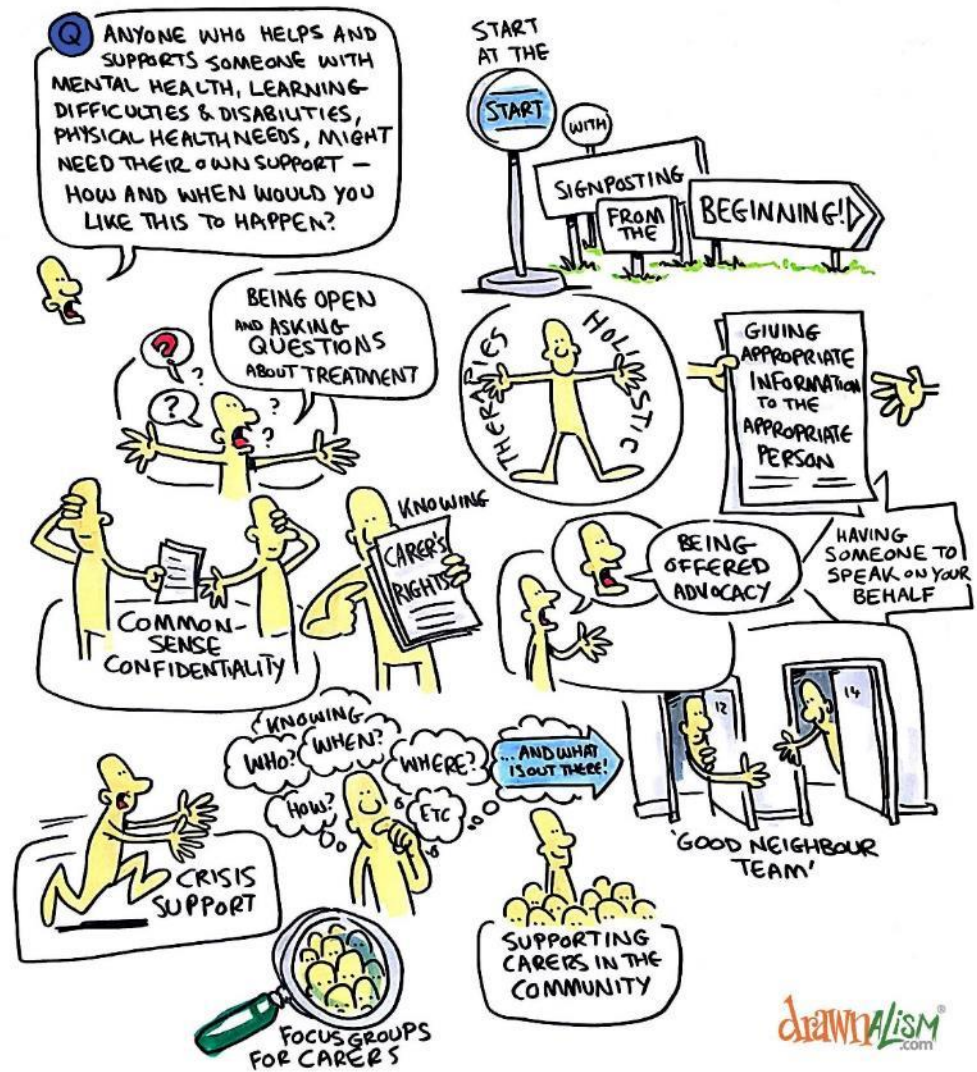 Q
ANYONE WHO HELPS AND
SUPPORTS SOMEONE WITH
MENTAL HEALTH, LEARNING
DIFFICULTIES & DISABILITIES,
PHYSICAL HEALTH NEEDS, MIGHT
NEED THEIR OWN SUPPORT -
HOW AND WHEN WOULD YOU
LIKE THIS TO HAPPEN?
START
AT THE
START
WITH
SIGNPOSTING
FROM
THE
BEGINNING!
BEING OPEN
AND ASKING
QUESTIONS
ABOUT TREATMENT
?
?
?
?
?
HOLISTIC
THERAPIES
GIVING
APPROPRIATE
INFORMATION
TO THE
APPROPRIATE
PERSON
COMMON-
SENSE
CONFIDENTALITY
KNOWING
CARER'S
RIGHTS
BEING
OFFERED
ADVOCACY
HAVING
SOMEONE TO
SPEAK ON YOUR
BEHALF
12
14
'GOOD NEIGHBOUR
TEAM'
CRISIS
SUPPORT
KNOWING
WHO?
WHEN?
WHERE?
HOW?
ETC
...AND WHAT
IS OUT THERE!
SUPPORTING
CARERS IN THE
COMMUNITY
FOCUS GROUPS
FOR CARERS
drawnALISM®
.com